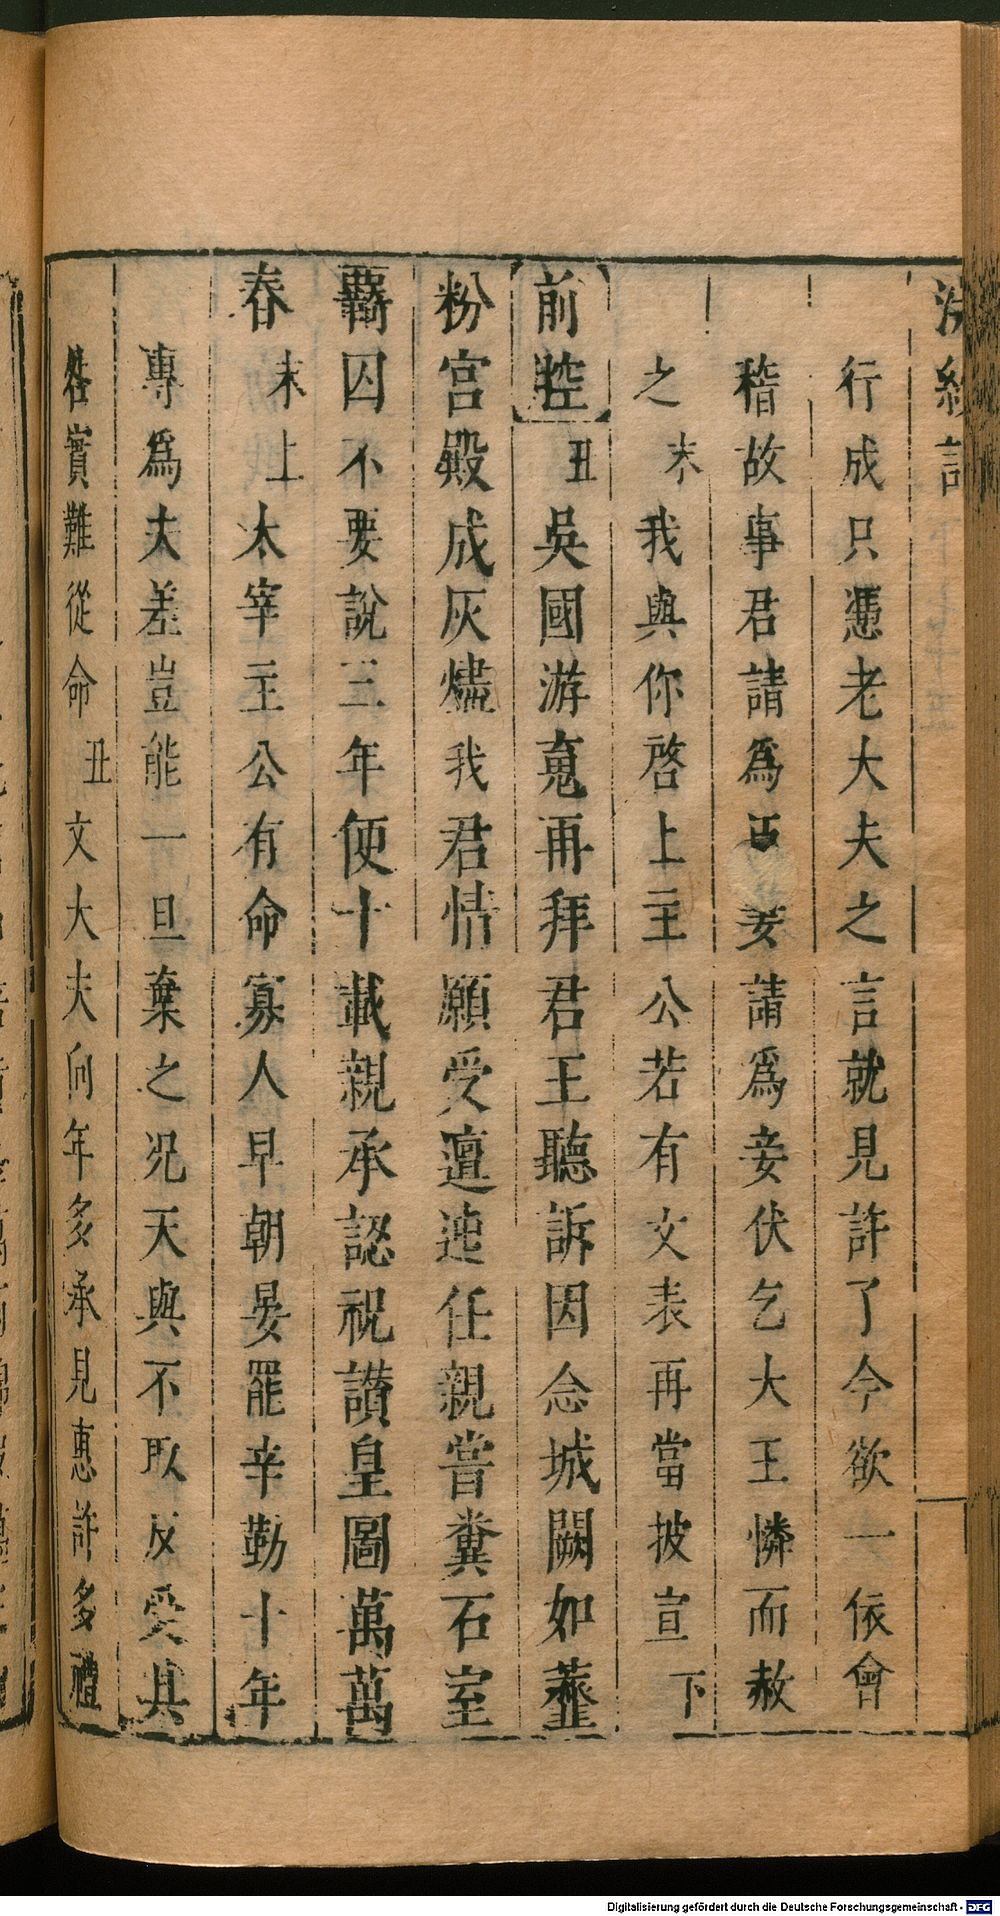 浣紗記
行成只憑老大夫之言就見許了今欲一依會
稽故事君請為臣妾請為妾伏乞大王憐而赦
之末我與你啓上主公若有文表再當披宣下
前腔丑吳國游䰟再拜君王聽訴因念城闕如虀
粉宮殿成灰燼我君情願受邅迍任親嘗糞石室
羈囚不要說三年便十載親承認祝讚皇圖萬萬
春末上太宰主公有命寡人早朝晏罷辛勤十年
專為夫差豈能一旦棄之況天與不取反受其
咎實難從命丑文大夫向年多承見惠許多禮
Digitalisierung gefördert durch die Deutsche Forschungsgemeinschaft - DFG